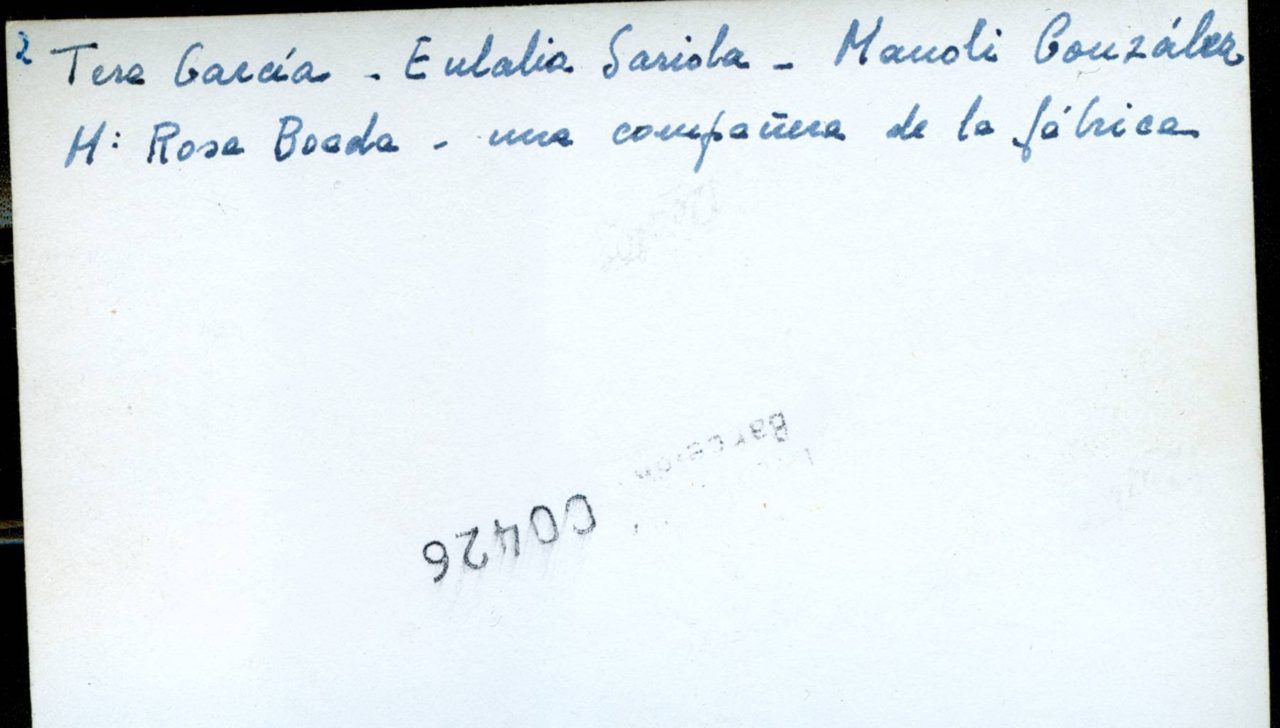 2 Tere García - Eulalia Sariola - Manoli González
Mª Rosa Boada - una compañera de la fábrica
Barcelon
00426